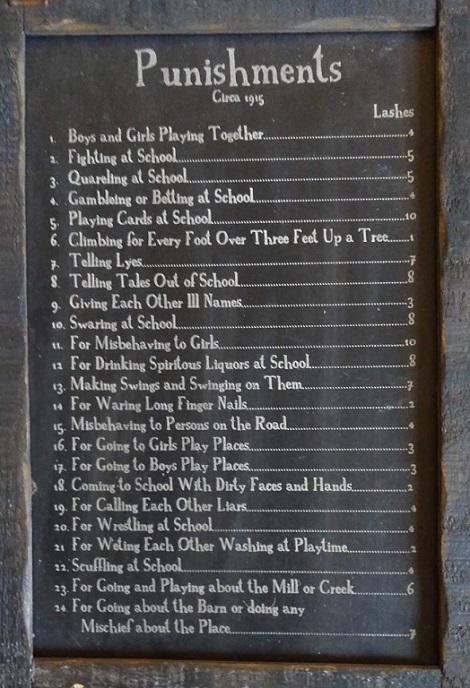 Punishments
Circa 1915
Lashes
1. Boys and Girls Playing Together 4
2. Fighting at School 5
3. Quareling at School 5
4. Gambleing or Betting at School 4
5. Playing Cards at School 10
6. Climbing for Every Foot Over Three Feet Up a Tree 1
7. Telling Lyes 7
8. Telling Tales Out of School 8
9. Giving Each Other Ill Names 3
10. Swaring at School 8
11. For Misbehaving to Girls 10
12 For Drinking Spiritous Liquors at School 8
13. Making Swings and Swinging on Them 7
14 For Waring Long Finger Nails 2
15. Misbehaving to Persons on the Road 4
16. For Going to Girls Play Places 3
17. For Going to Boys Play Places 3
18. Coming to School With Dirty Faces and Hands 2
19. For Calling Each Other Liars 4
20. For Wrestling at School 4
21 For Weting Each Other Washing at Playtime 2
22. Scuffling at School 4
23. For Going and Playing about the Mill or Creek 6
24 For Going about the Barn or doing any
Mischief about the Place 7